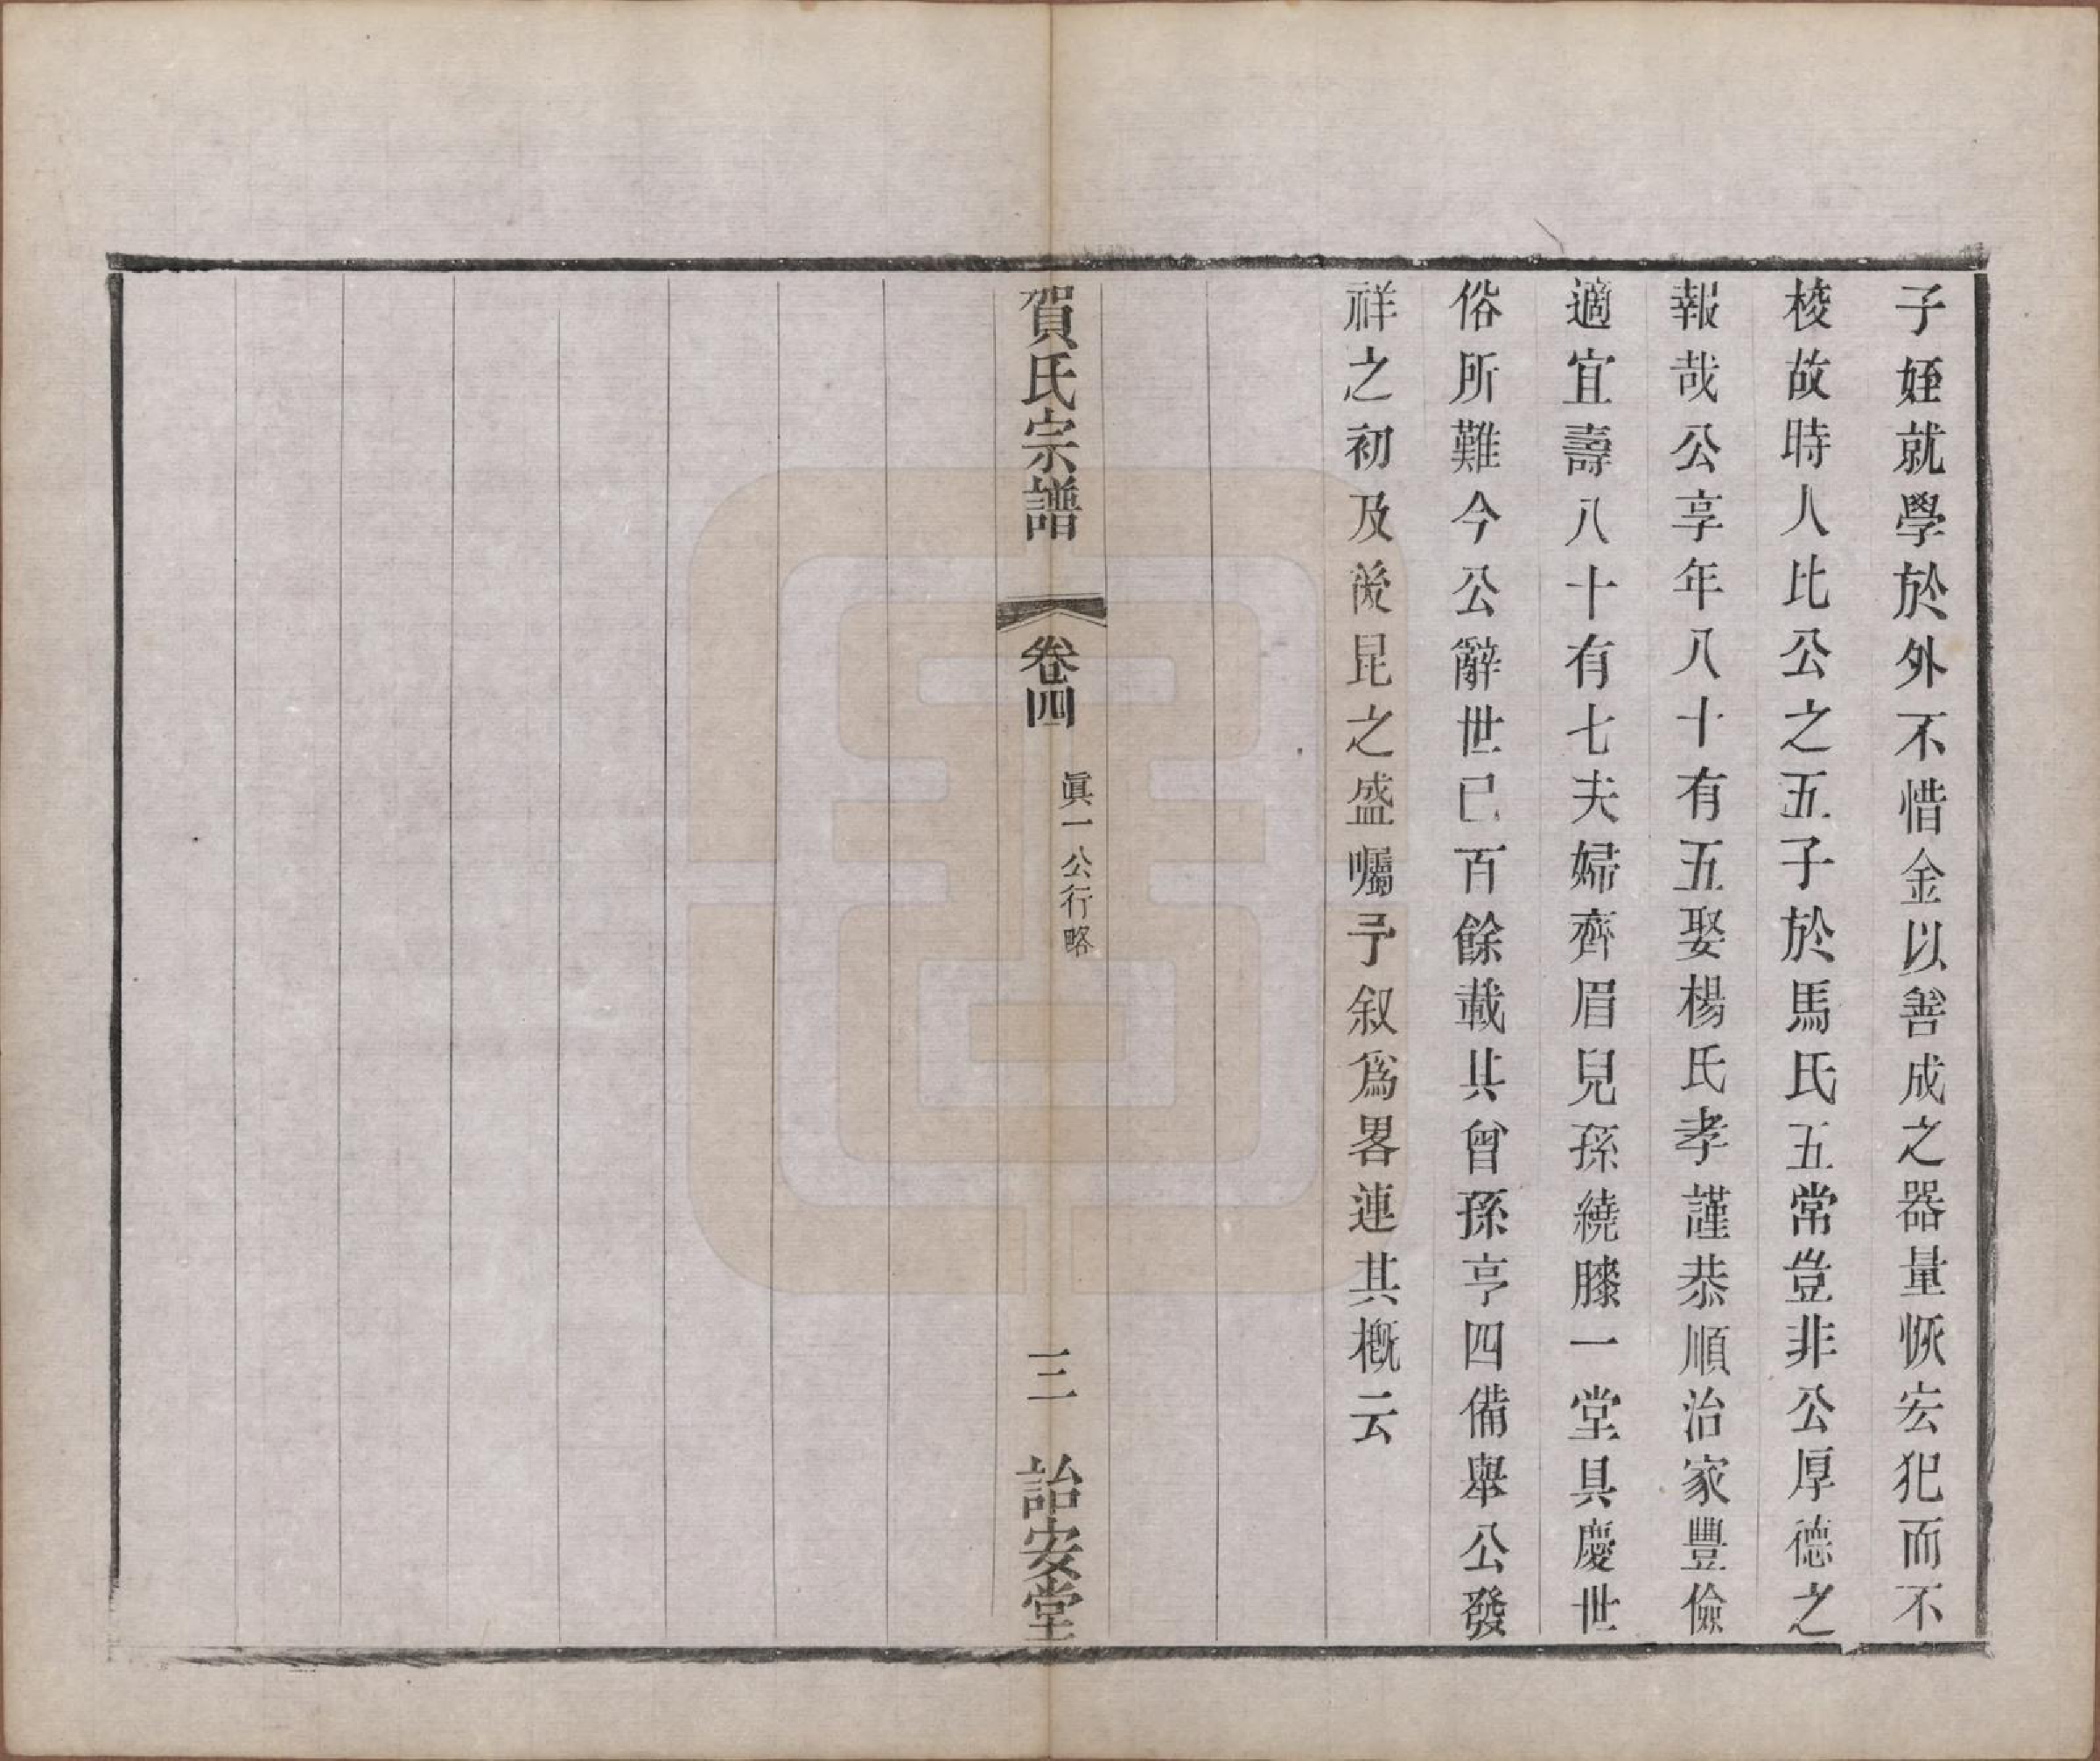 子姪就學於外不惜金以善成之器量恢宏犯而不
棱故時人比公之五子於馬氏五常豈非公厚德之
報哉公享年八十有五娶楊氏孝謹恭順治家豐儉
適宜壽八十有七夫婦齊眉兒孫繞膝一堂具慶世
俗所難今公辭世已百餘載其曾孫亨四備舉公發
祥之初及後昆之盛囑予叙爲畧連其槪云
賀氏宗譜 卷四 眞一公行略 三 詒安堂